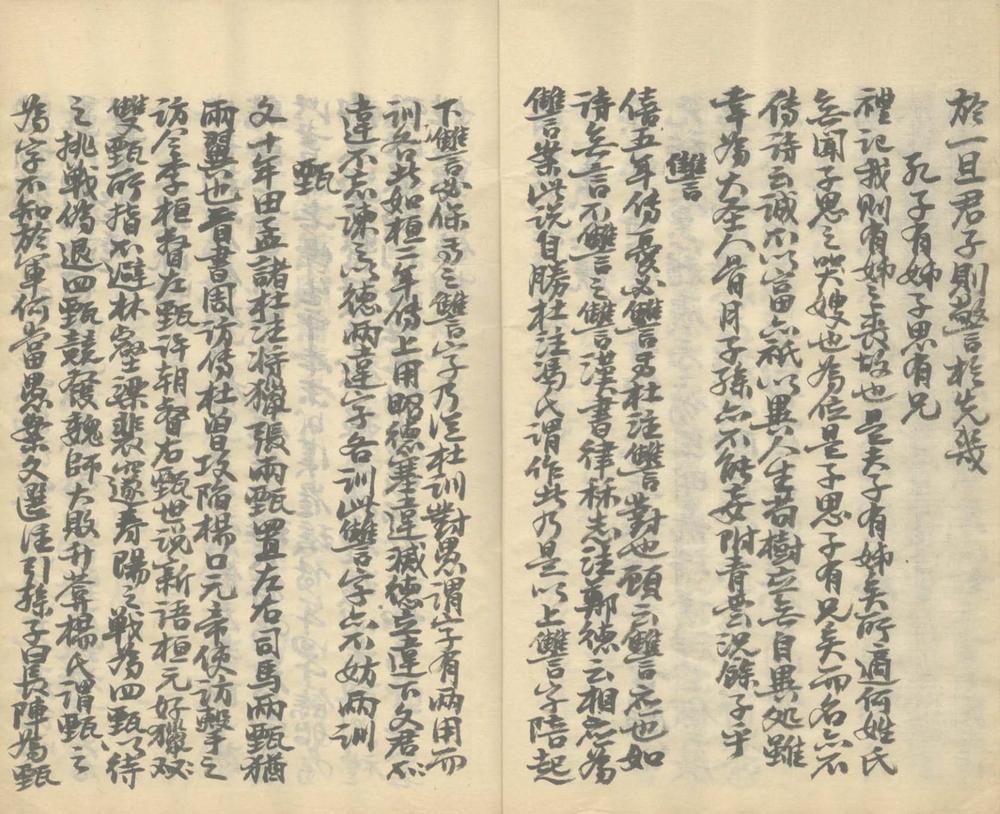 於一旦君子則警於先幾
孔子有姊子思有兄
禮記我則有姊之喪故也是夫子有姊矣所適何姓氏
無聞子思之哭嫂也為位是子思子有兄矣而名亦不
傳詩云誠不以富亦祇以異人生若樹立無自異処雖
幸為大圣人骨月子孫亦不能妄附青雲況餘子乎
讐
僖五年傳憂必讐焉杜注讐對也顧云讐言應也如
詩無言不讐之讐漢書律厤志注鄭德云相應為
讐案此說自勝杜注馮氏謂作此乃是以上讐字陪起
下讐必保焉之讐字乃從杜訓對愚謂字有兩用而
訓各如此如桓二年傳上用昭德塞違滅德立違下文君不
違不忘諫之以德兩違字各訓此讐字亦不妨兩訓
甄
文十年田孟諸杜注將獵張兩甄置左右司馬兩甄猶
兩翼也晉書周訪傳杜曾攻陷楊口元帝使訪擊之
訪令李桓督左甄許朝督右甄世說新語桓元好獵
雙甄所指不避林壑梁裴邃壽陽之戰為四甄以待
之挑戰偽退四甄競發魏師大敗升菴楊氏謂甄之
為字不知於軍何當愚案文選注引孫子曰長陣為甄